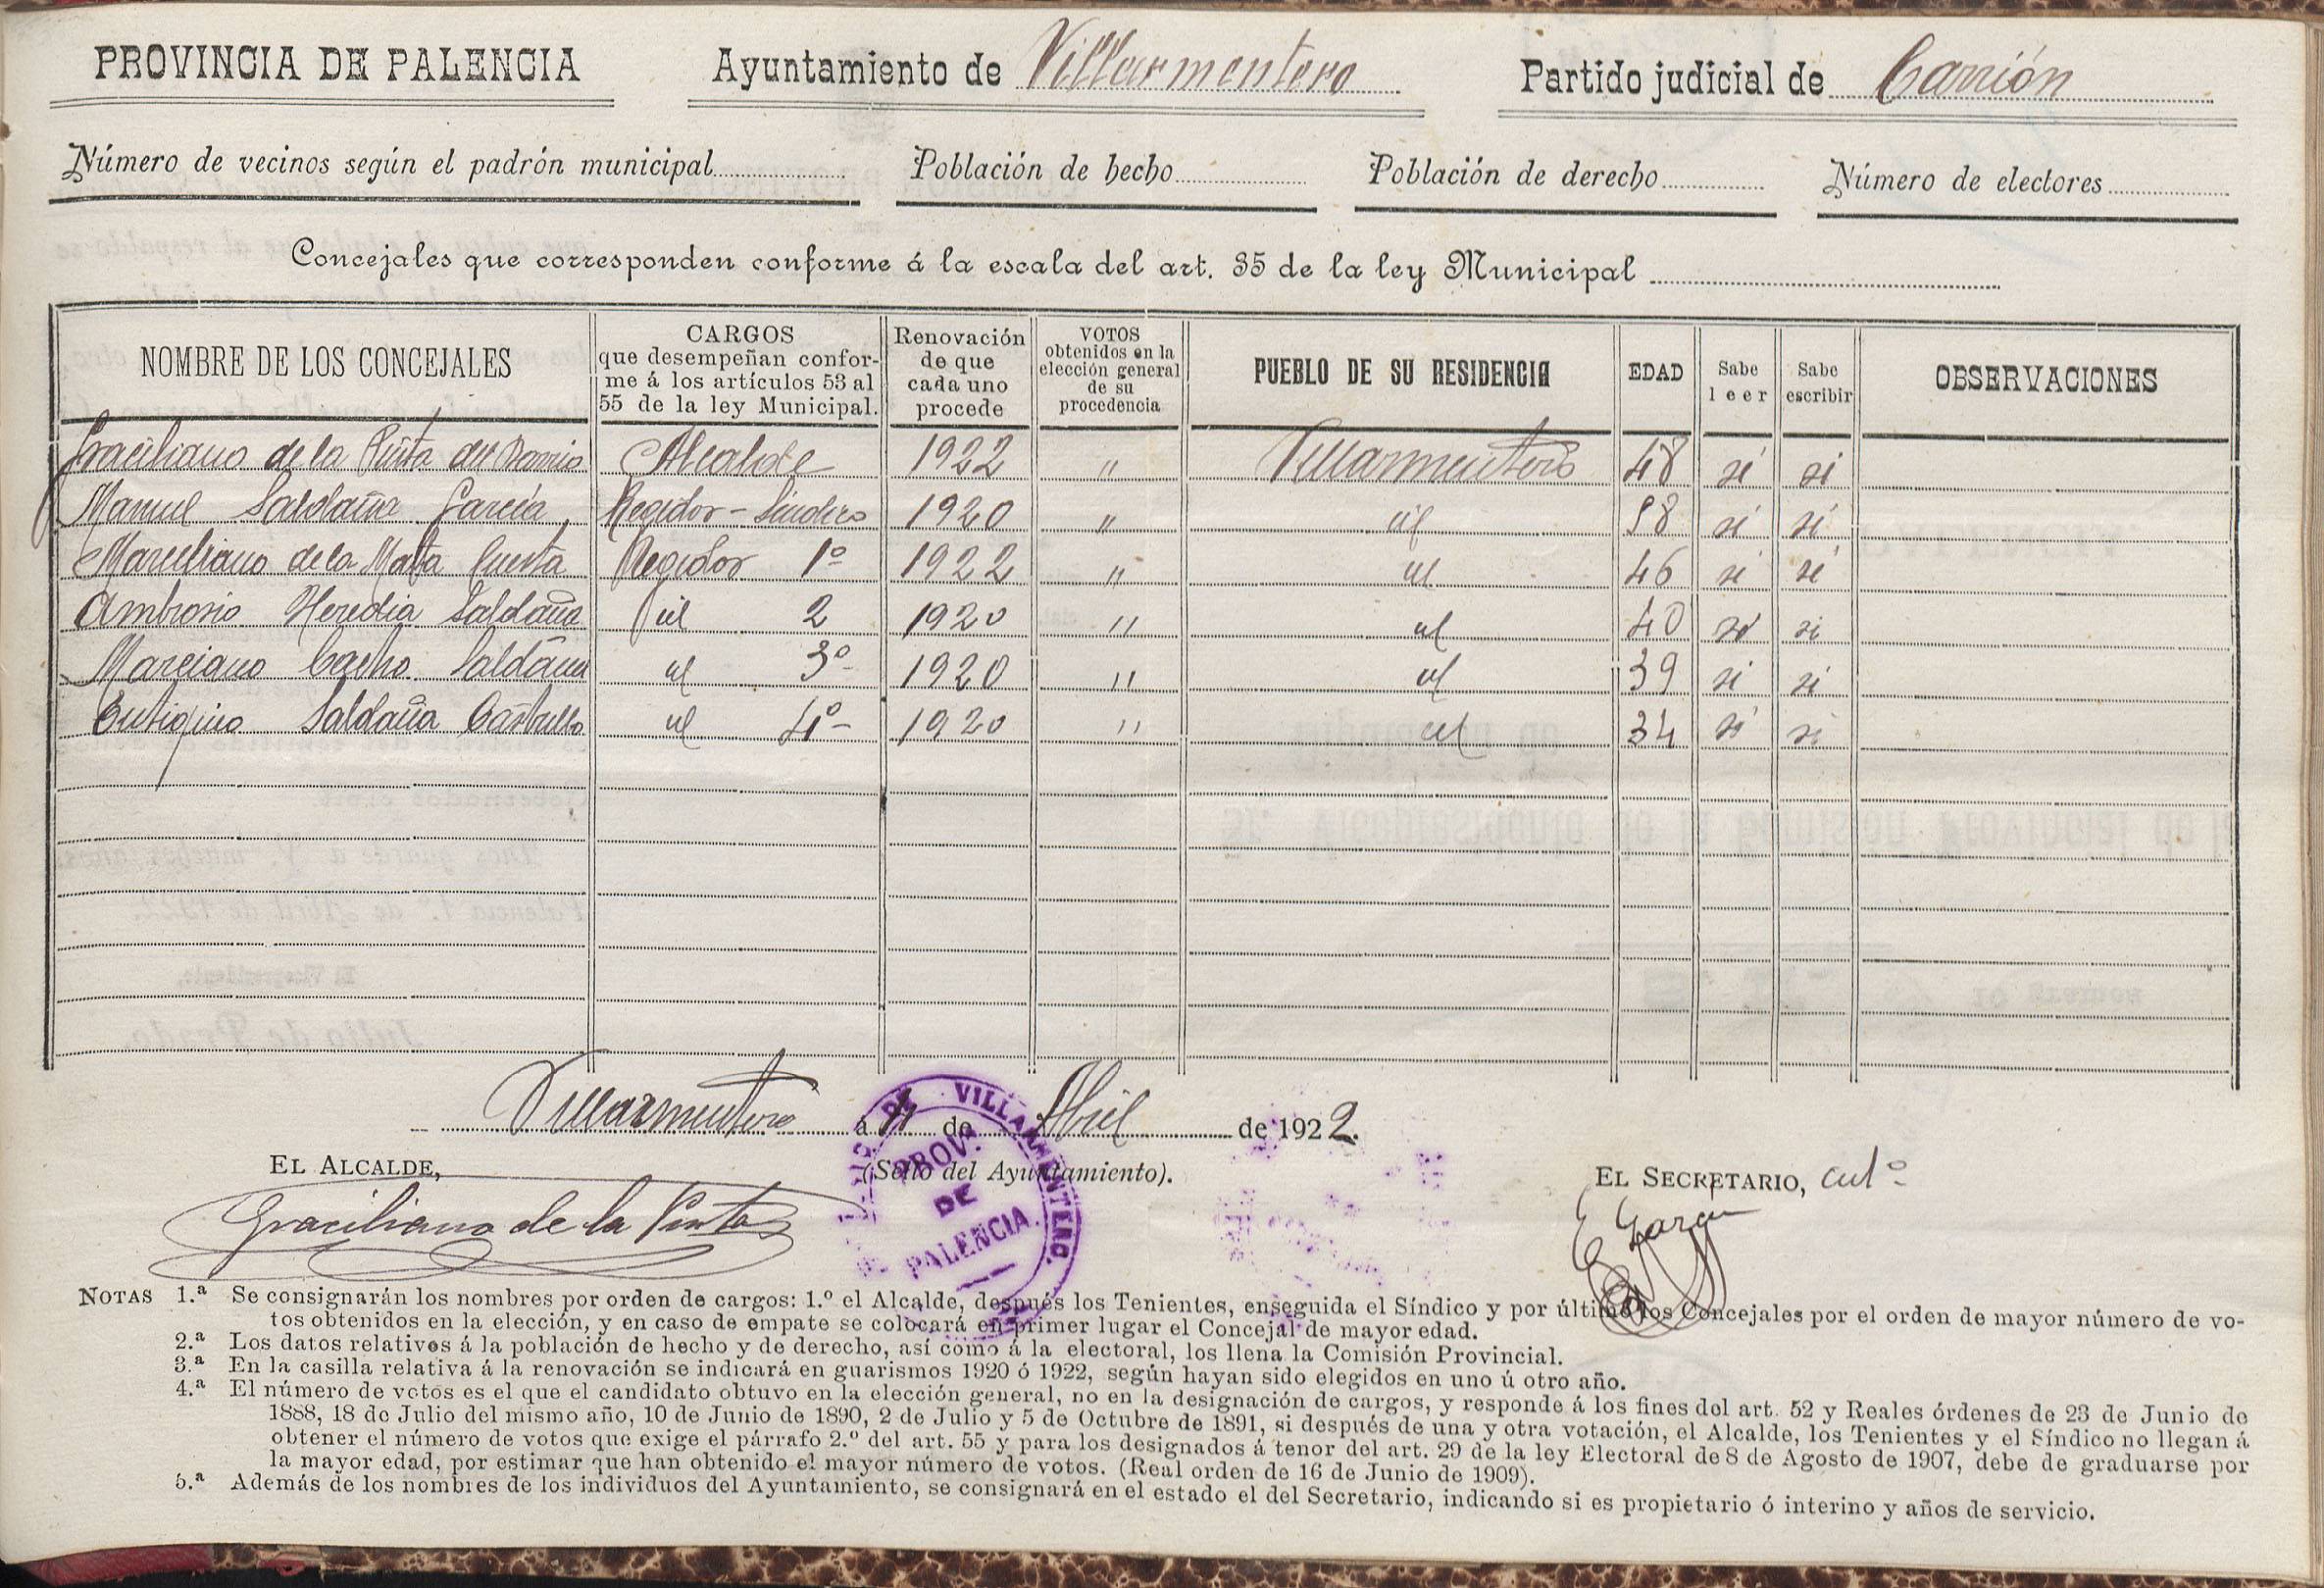 PROVINCIA DE PALENCIA Ayuntamiento de Villarmentero Partido judicial de Carrión
Número de vecinos según el padrón municipal Población de hecho Población de derecho Número de electores
Concejales que corresponden conforme á la escala del art. 35 de la ley Municipal
NOMBRE DE LOS CONCEJALES
CARGOS
que desempeñan confor-
me á los artículos 53 al
55 de la ley Municipal.
Renovación
de que
cada uno
procede
VOTOS
obtenidos en la
elección general
de su
procedencia
PUEBLO DE SU RESIDENCIA
EDAD
Sabe
leer
Sabe
escribir
OBSERVACIONES
Graciliano de la Pinta del Barrio Alcalde 1922 " Villarmentero 48 si si
Manuel Saldaña García Regidor-Síndico 1920 " id 58 si si
Marceliano de la Mata Cuesta Regidor 1º 1922 " id 46 si si
Ambrosio Heredia Saldaña id 2 1920 " id 40 si si
Marciano Cacho Saldaña id 3º 1920 " id 39 si si
Eutiquio Saldaña Castrillo id 4º 1920 " id 34 si si
Villarmentero á de Abril de 1922.
EL ALCALDE, (Sello del Ayuntamiento). EL SECRETARIO,
Graciliano de la Pinta
DE VILLARMENTERO.
PROV.ª
DE
PALENCIA
E García
NOTAS 1.ª Se consignarán los nombres por orden de cargos: 1.º el Alcalde, después los Tenientes, enseguida el Síndico y por último los Concejales por el orden de mayor número de vo-
tos obtenidos en la elección, y en caso de empate se colocará en primer lugar el Concejal de mayor edad.
2.ª Los datos relativos á la población de hecho y de derecho, así como á la electoral, los llena la Comisión Provincial.
3.ª En la casilla relativa á la renovación se indicará en guarismos 1920 ó 1922, según hayan sido elegidos en uno ú otro año.
4.ª El número de votos es el que el candidato obtuvo en la elección general, no en la designación de cargos, y responde á los fines del art. 52 y Reales órdenes de 23 de Junio de
1888, 18 de Julio del mismo año, 10 de Junio de 1890, 2 de Julio y 5 de Octubre de 1891, si después de una y otra votación, el Alcalde, los Tenientes y el Síndico no llegan á
obtener el número de votos que exige el párrafo 2.º del art. 55 y para los designados á tenor del art. 29 de la ley Electoral de 8 de Agosto de 1907, debe de graduarse por
la mayor edad, por estimar que han obtenido el mayor número de votos. (Real orden de 16 de Junio de 1909).
5.ª Además de los nombres de los individuos del Ayuntamiento, se consignará en el estado el del Secretario, indicando si es propietario ó interino y años de servicio.